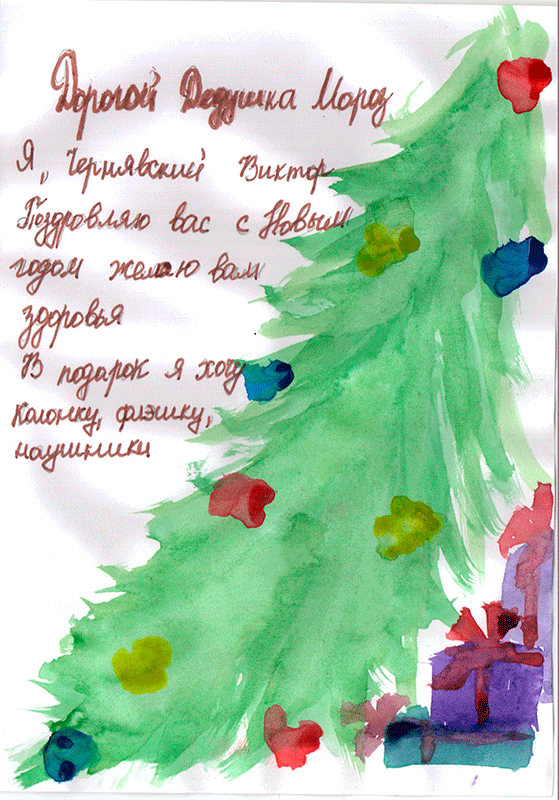 Дорогой Дедушка Мороз
Я, Чернявский Виктор
Поздровляю вас с Новым
годом желаю вам
здоровья
В подарок я хочу
колонку, флэшку,
наушники